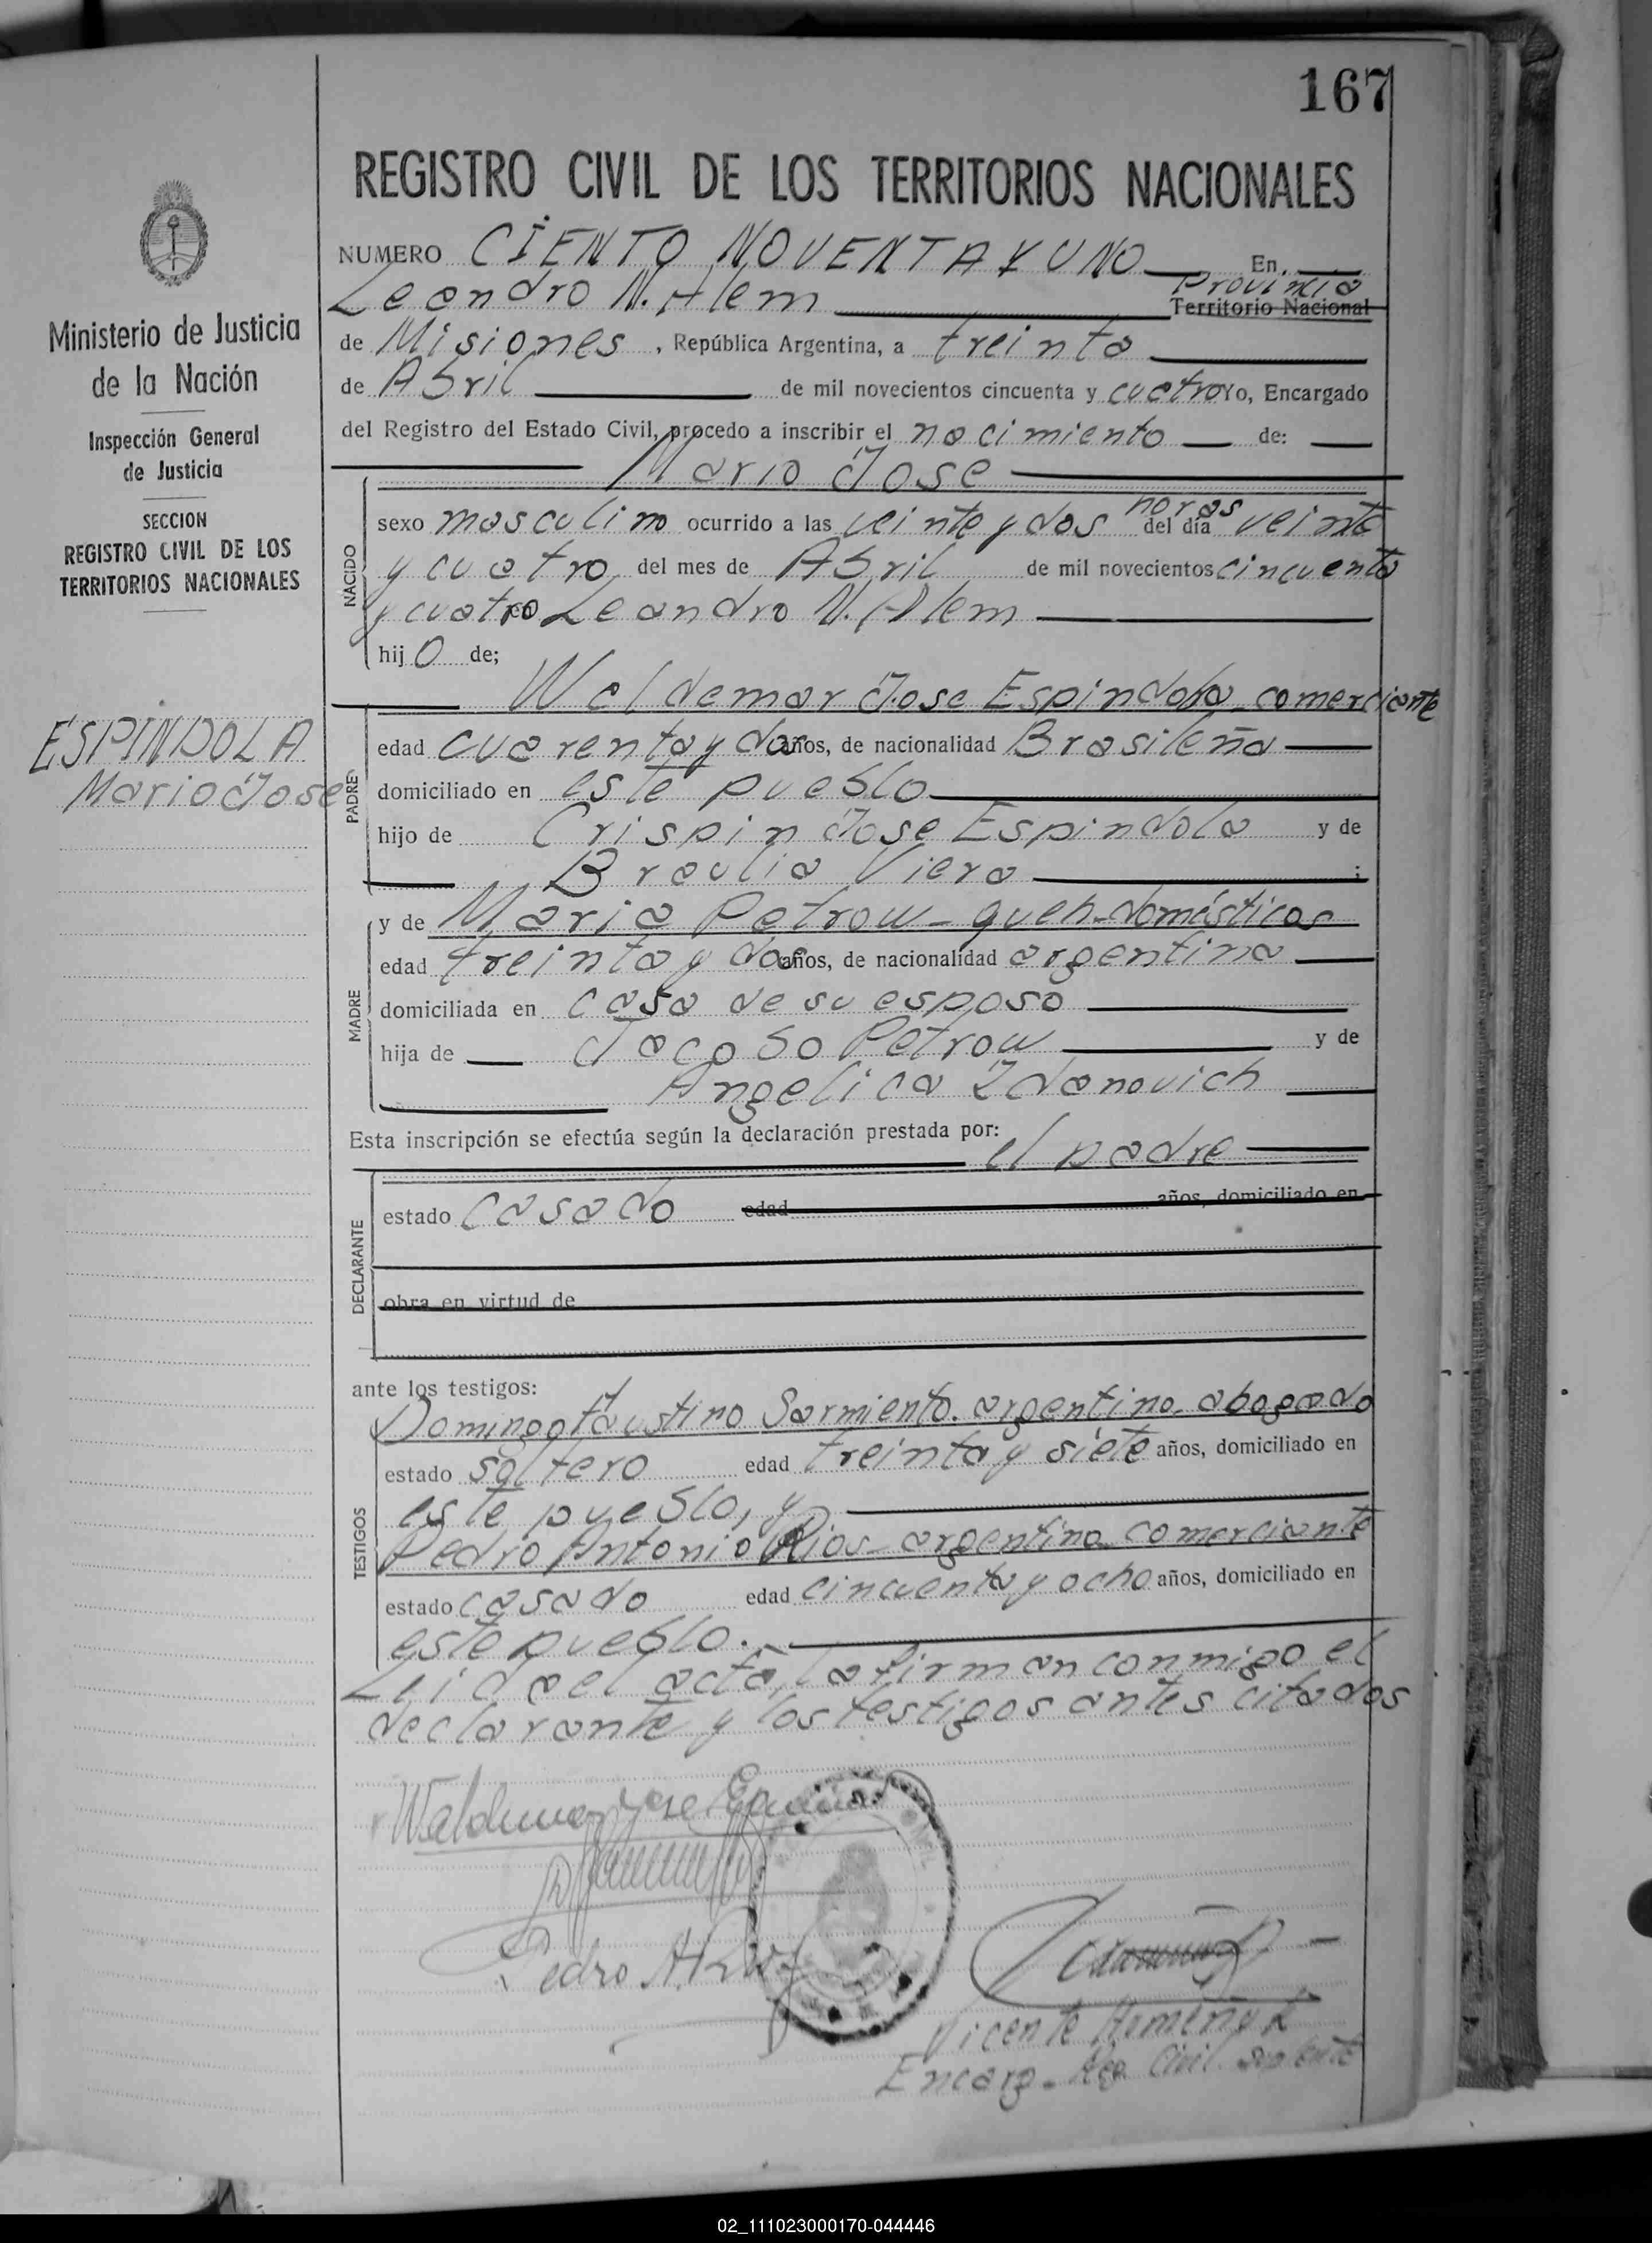 167
REGISTRO CIVIL DE LOS TERRITORIOS NACIONALES
NUMERO CIENTO NOVENTA Y UNO En
Leandro N. Alem Provincia Territorio Nacional
de Misiones, República Argentina, a treinta
de Abril de mil novecientos cincuenta y cuatro Yo, Encargado
del Registro del Estado Civil, procedo a inscribir el nacimiento de:
Mario Jose
NACIDO
sexo masculino ocurrido a las veinte y dos horas del día veinte
y cuatro del mes de Abril de mil novecientos cincuenta
y cuatro Leandro N. Alem
hijo de;
Weldemar Jose Espindola comerciante
PADRE
edad cuarenta y dos años, de nacionalidad Brasileña
domiciliado en este pueblo
hijo de Crispin Jose Espindola y de
Braulia Viera ;
MADRE
y de Maria Petrow - queh. domésticos
edad treinta y dos años, de nacionalidad argentina
domiciliada en casa de su esposo
hija de Jacobo Petrow y de
Angelica Zdanovich
Esta inscripción se efectúa según la declaración prestada por:
el padre
DECLARANTE
estado casado edad años, domiciliado en
obra en virtud de
ante los testigos:
TESTIGOS
Domingo Faustino Sarmiento. argentino. abogado
estado soltero edad treinta y siete años, domiciliado en
este pueblo, y
Pedro Antonio Rios - argentino comerciante
estado casado edad cincuenta y ocho años, domiciliado en
este pueblo.
Leida el acta, la firman conmigo el
declarante y los testigos antes citados
Waldemar Jose
Pedro A.
Vicente
Encarg. Reg. Civil suplente
Ministerio de Justicia
de la Nación
Inspección General
de Justicia
SECCION
REGISTRO CIVIL DE LOS
TERRITORIOS NACIONALES
ESPINDOLA
Mario Jose
02_111023000170-044446